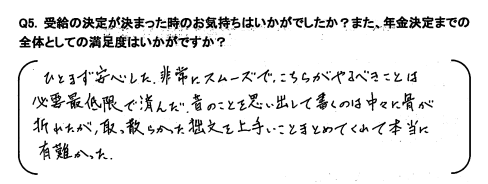 Q5. 受給の決定が決まった時のお気持ちはいかがでしたか？また、年金決定までの
全体としての満足度はいかがですか？
ひとまず安心した。非常にスムーズで、こちらがやるべきことは
必要最低限で済んだ。昔のことを思い出して書くのは中々に骨が
折れたが、取っ散らかった拙文を上手いことまとめてくれて本当に
有難かった。